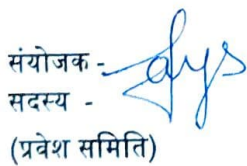 संयोजक -
सदस्य -
(प्रवेश समिति)